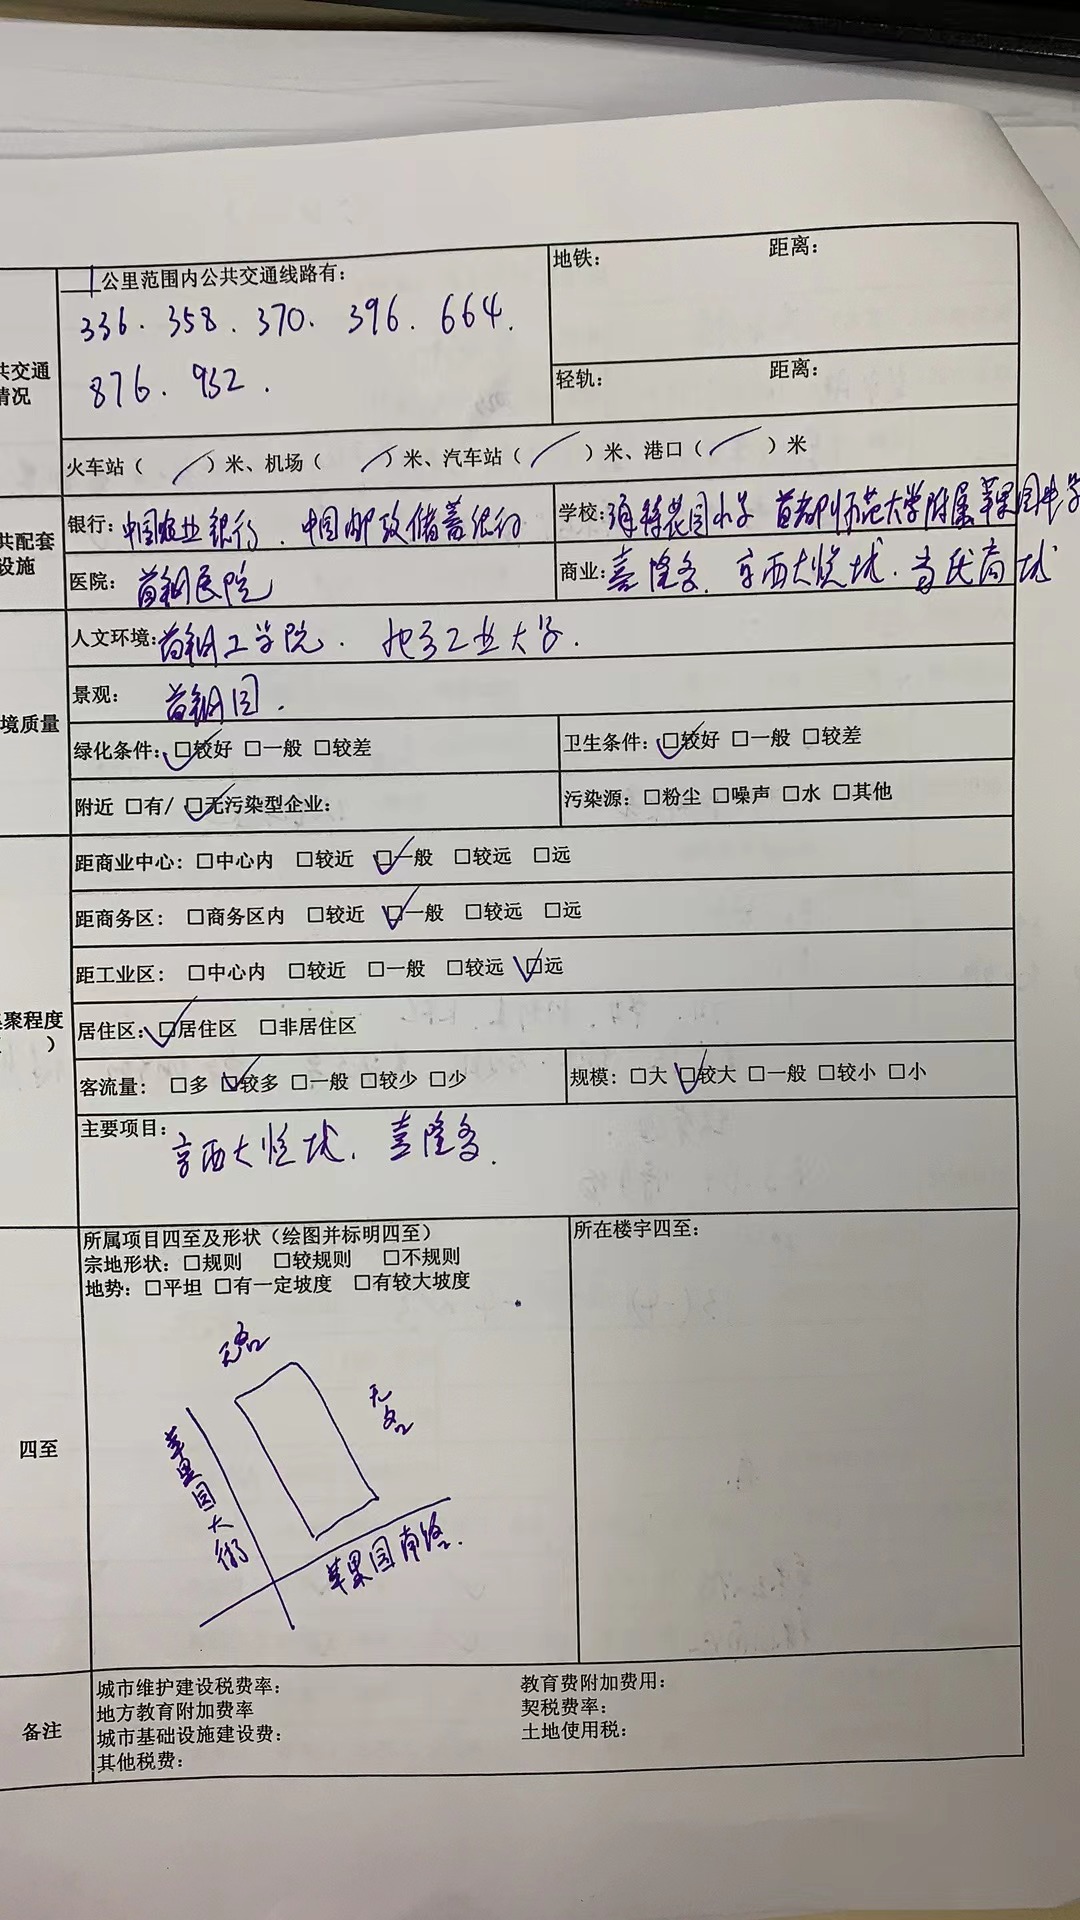 1公里范围内公共交通线路有:
336. 358. 370. 396. 664.
876. 932.
地铁: 距离:
轻轨: 距离:
共交通
情况
火车站( )米、机场( )米、汽车站( )米、港口( )米
共配套
设施
银行:中国农业银行、中国邮政储蓄银行
学校:海特花园小学 首都师范大学附属苹果园中学
医院:首钢医院
商业:喜隆多、京西大悦城、当代商城
境质量
人文环境:首钢工学院. 北方工业大学.
景观: 首钢园.
绿化条件:☑较好 □一般 □较差
卫生条件:☑较好 □一般 □较差
附近 □有/ ☑无污染型企业:
污染源:□粉尘 □噪声 □水 □其他
聚程度
)
距商业中心:□中心内 □较近 ☑一般 □较远 □远
距商务区: □商务区内 □较近 ☑一般 □较远 □远
距工业区: □中心内 □较近 □一般 □较远 ☑远
居住区:☑居住区 □非居住区
客流量: □多 ☑较多 □一般 □较少 □少
规模:□大 ☑较大 □一般 □较小 □小
主要项目: 京西大悦城. 喜隆多.
四至
所属项目四至及形状(绘图并标明四至)
宗地形状:□规则 □较规则 □不规则
地势:□平坦 □有一定坡度 □有较大坡度
无名
无名
苹果园大街
苹果园南路.
所在楼宇四至:
备注
城市维护建设税费率: 教育费附加费用:
地方教育附加费率 契税费率:
城市基础设施建设费: 土地使用税:
其他税费: